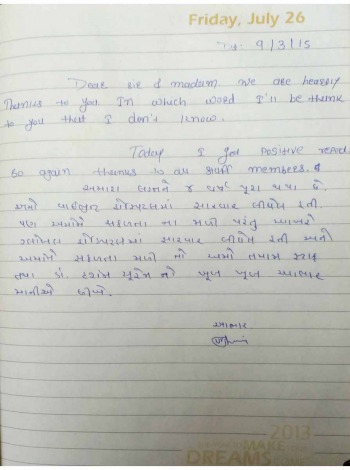 Friday, July 26
9/3/15
Dear sir & madam we are heartly
Thenks to you. In which word I'll be thenk
to you that I don't know.
Today I got positive repot.
so again thenks to all staff members.
અમારા લગ્નને ૪ વર્ષ પુરા થયા છે.
અમો હોસ્પિટલમાં સારવાર લીધેલ હતી
પણ અમોને સફળતા ના મળી પરંતુ આખરે
હોસ્પિટલમાં સારવાર લીધેલ હતી અને
અમોને સફળતા મળી તો અમો તમામ સ્ટાફ
તથા ડો. નો ખૂબ ખૂબ આભાર
માનીએ છીએ.
આભાર
2013
MAKE
DREAMS